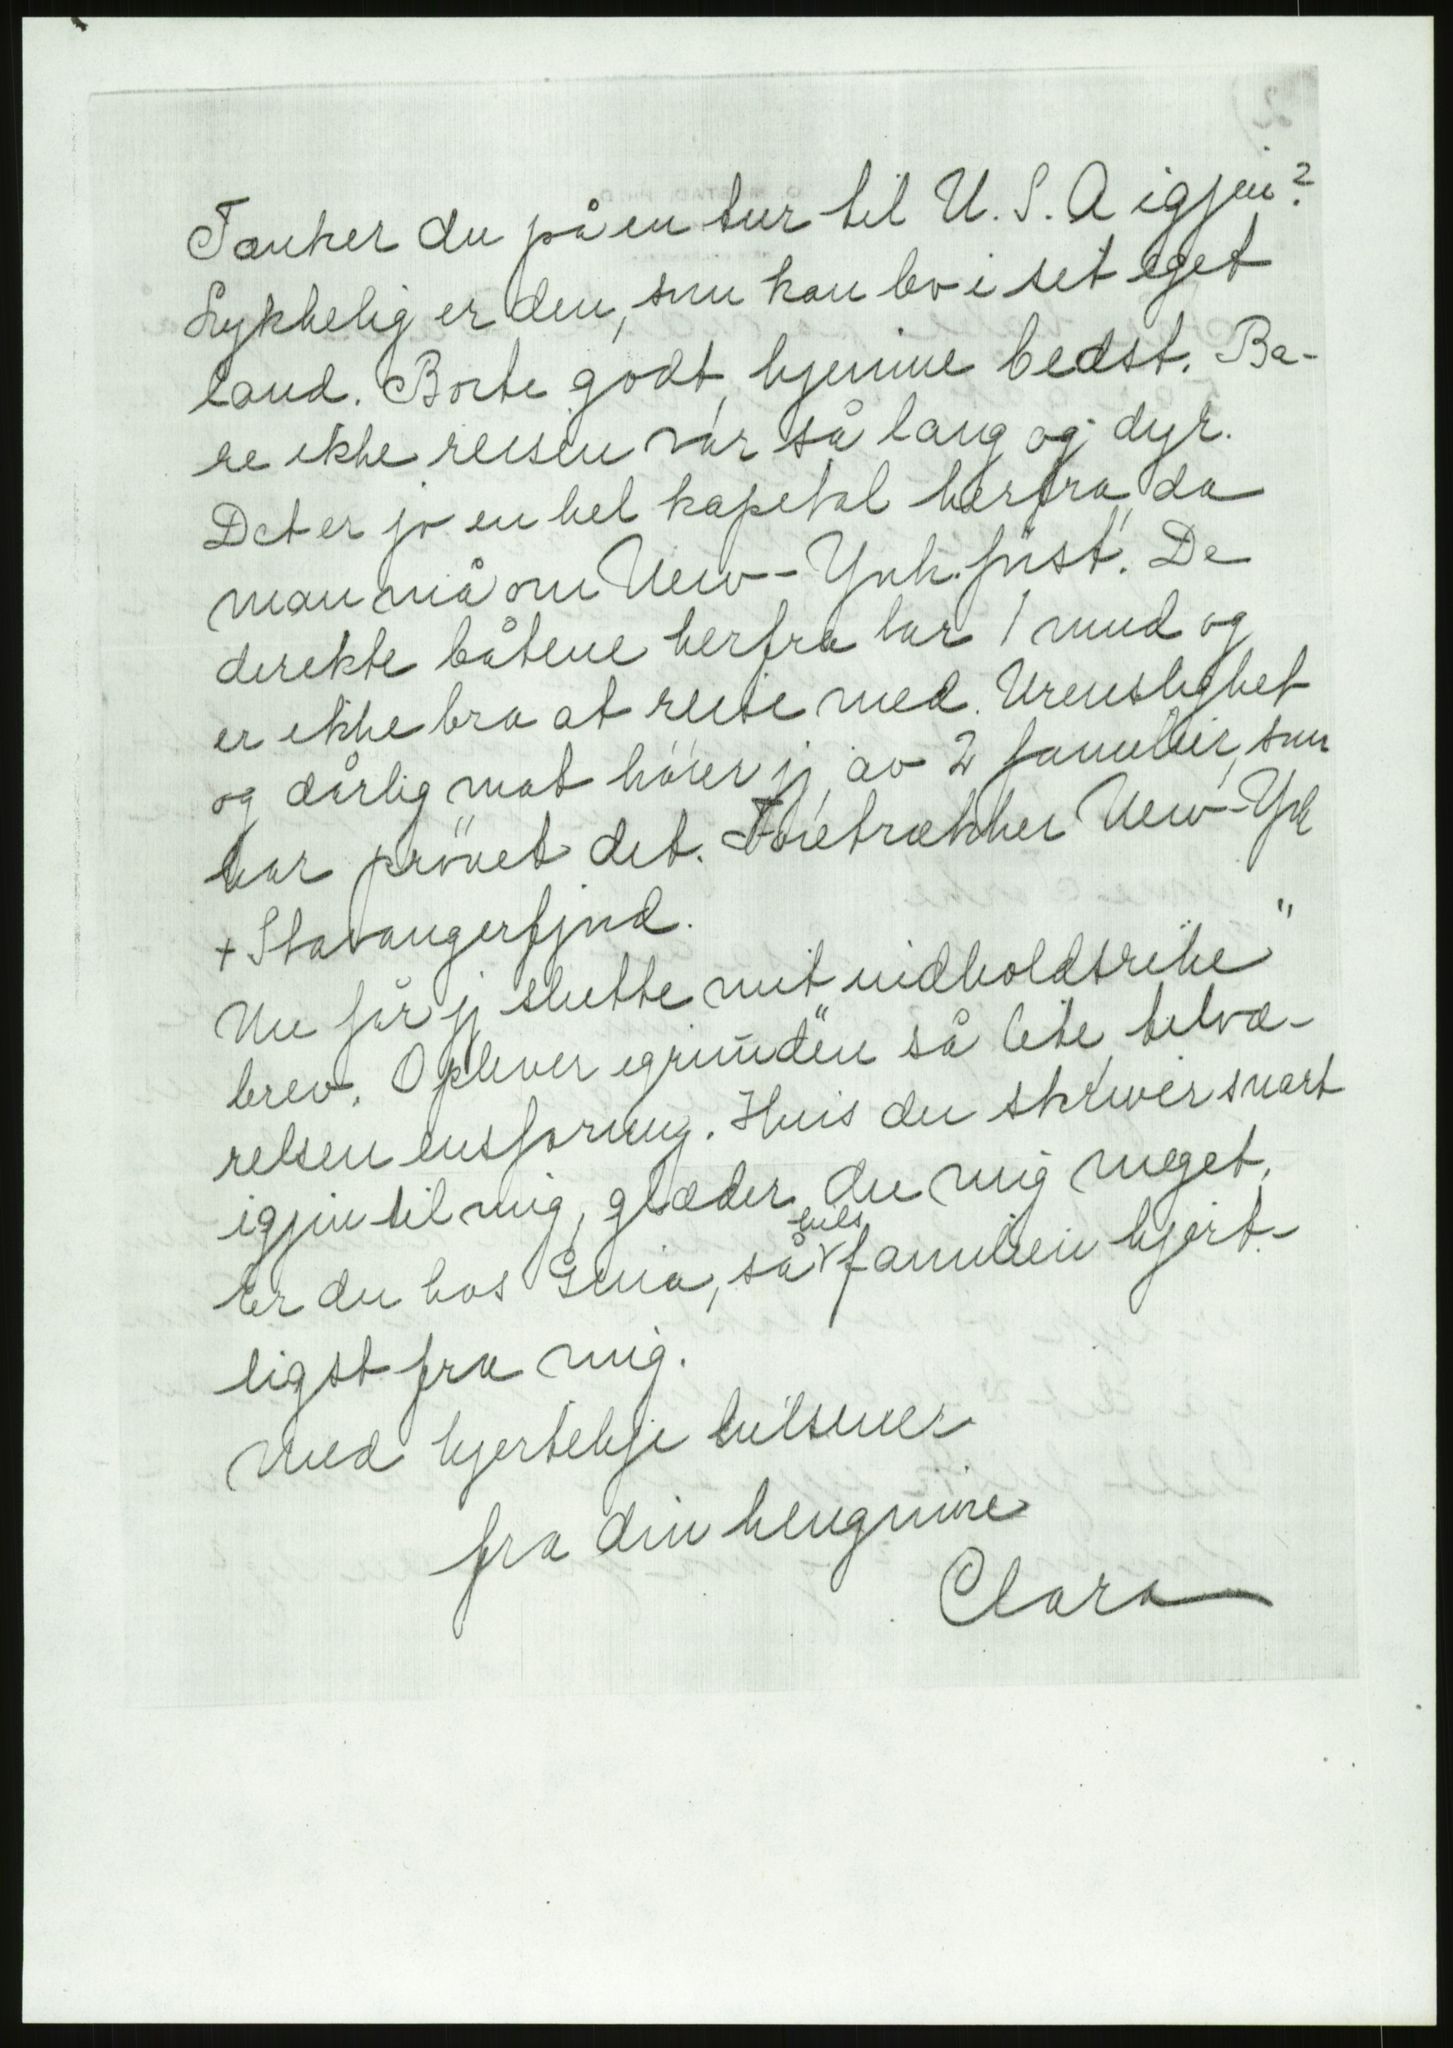 Tænker du på en tur til U.S.A igjen?
Lykkelig er den, som kan bo i set eget
land. Borte godt, hjemme bedst. Ba-
re ikke reisen var så lang og dyr.
Det er jo en hel kapetal herfra, da
man må om New-York først. De
derekte båtene herfra tar 1 mnd og
er ikke bra at reise med. Urenslighet
og dårlig mat hører jg av 2 familier, som
har prövet det. Foretrækker New-York
+ Stavangerfjord.
Nu får jg slutte mit indholdsrike"
brev. Oplever i grunden så lite, tilvæ-
relsen ensformig. Hvis du skriver snart
igjen til mig, glæder du mig meget.
Er du hos Gina, så hils familien hjert-
ligst fra mig.
Med hjertelige hilsener
fra din hengivne
Clara